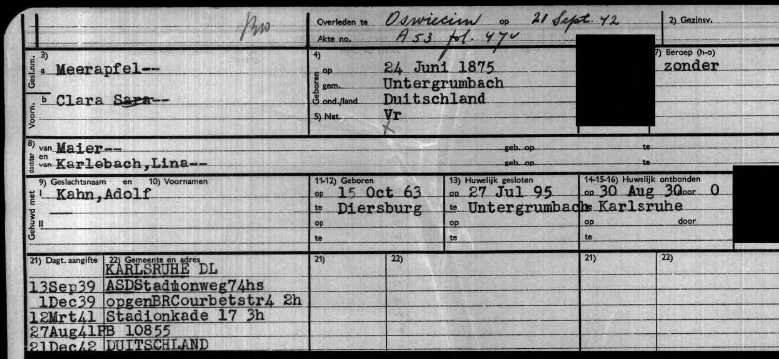 Pro
Overleden te Oswiecim op 21 Sept. 42 2) Gezinsv.
Akte no. A 53 fol. 47v
3) Gesl.nm. a Meerapfel--
Voorn. b Clara Sara--
4) Geboren op 24 Juni 1875
gem. Untergrumbach
ond./land Duitschland
5) Nat. Vr
7) Beroep (h-o)
zonder
8) van Maier-- geb. op te
dochter en van Karlebach,Lina-- geb. op te
9) Geslachtsnaam en 10) Voornamen 11-12) Geboren 13) Huwelijk gesloten 14-15-16) Huwelijk ontbonden
Gehuwd met I Kahn,Adolf op 15 Oct 63 op 27 Jul 95 op 30 Aug 30 door O
te Diersburg te Untergrumbach te Karlsruhe
II op op op door
te te te
21) Dagt. aangifte 22) Gemeente en adres 21) 22) 21) 22)
KARLSRUHE DL
13Sep39 ASDStadionweg74hs
1Dec39 opgenBRCourbetstr4 2h
12Mrt41 Stadionkade 17 3h
27Aug41PB 10855
21Dec42 DUITSCHLAND